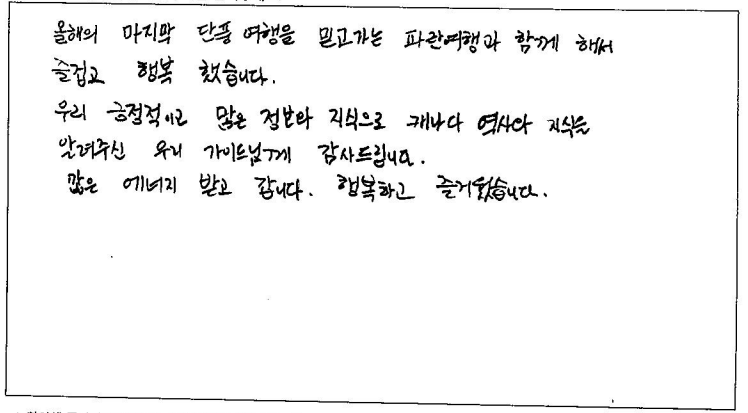 올해의 마지막 단풍 여행을 믿고가는 파란여행과 함께 해서
즐겁고 행복 했습니다.
우리 긍정적이고 많은 정보와 지식으로 캐나다 역사와 지식을
알려주신 우리 가이드님께 감사드립니다.
많은 에너지 받고 갑니다. 행복하고 즐거웠습니다.